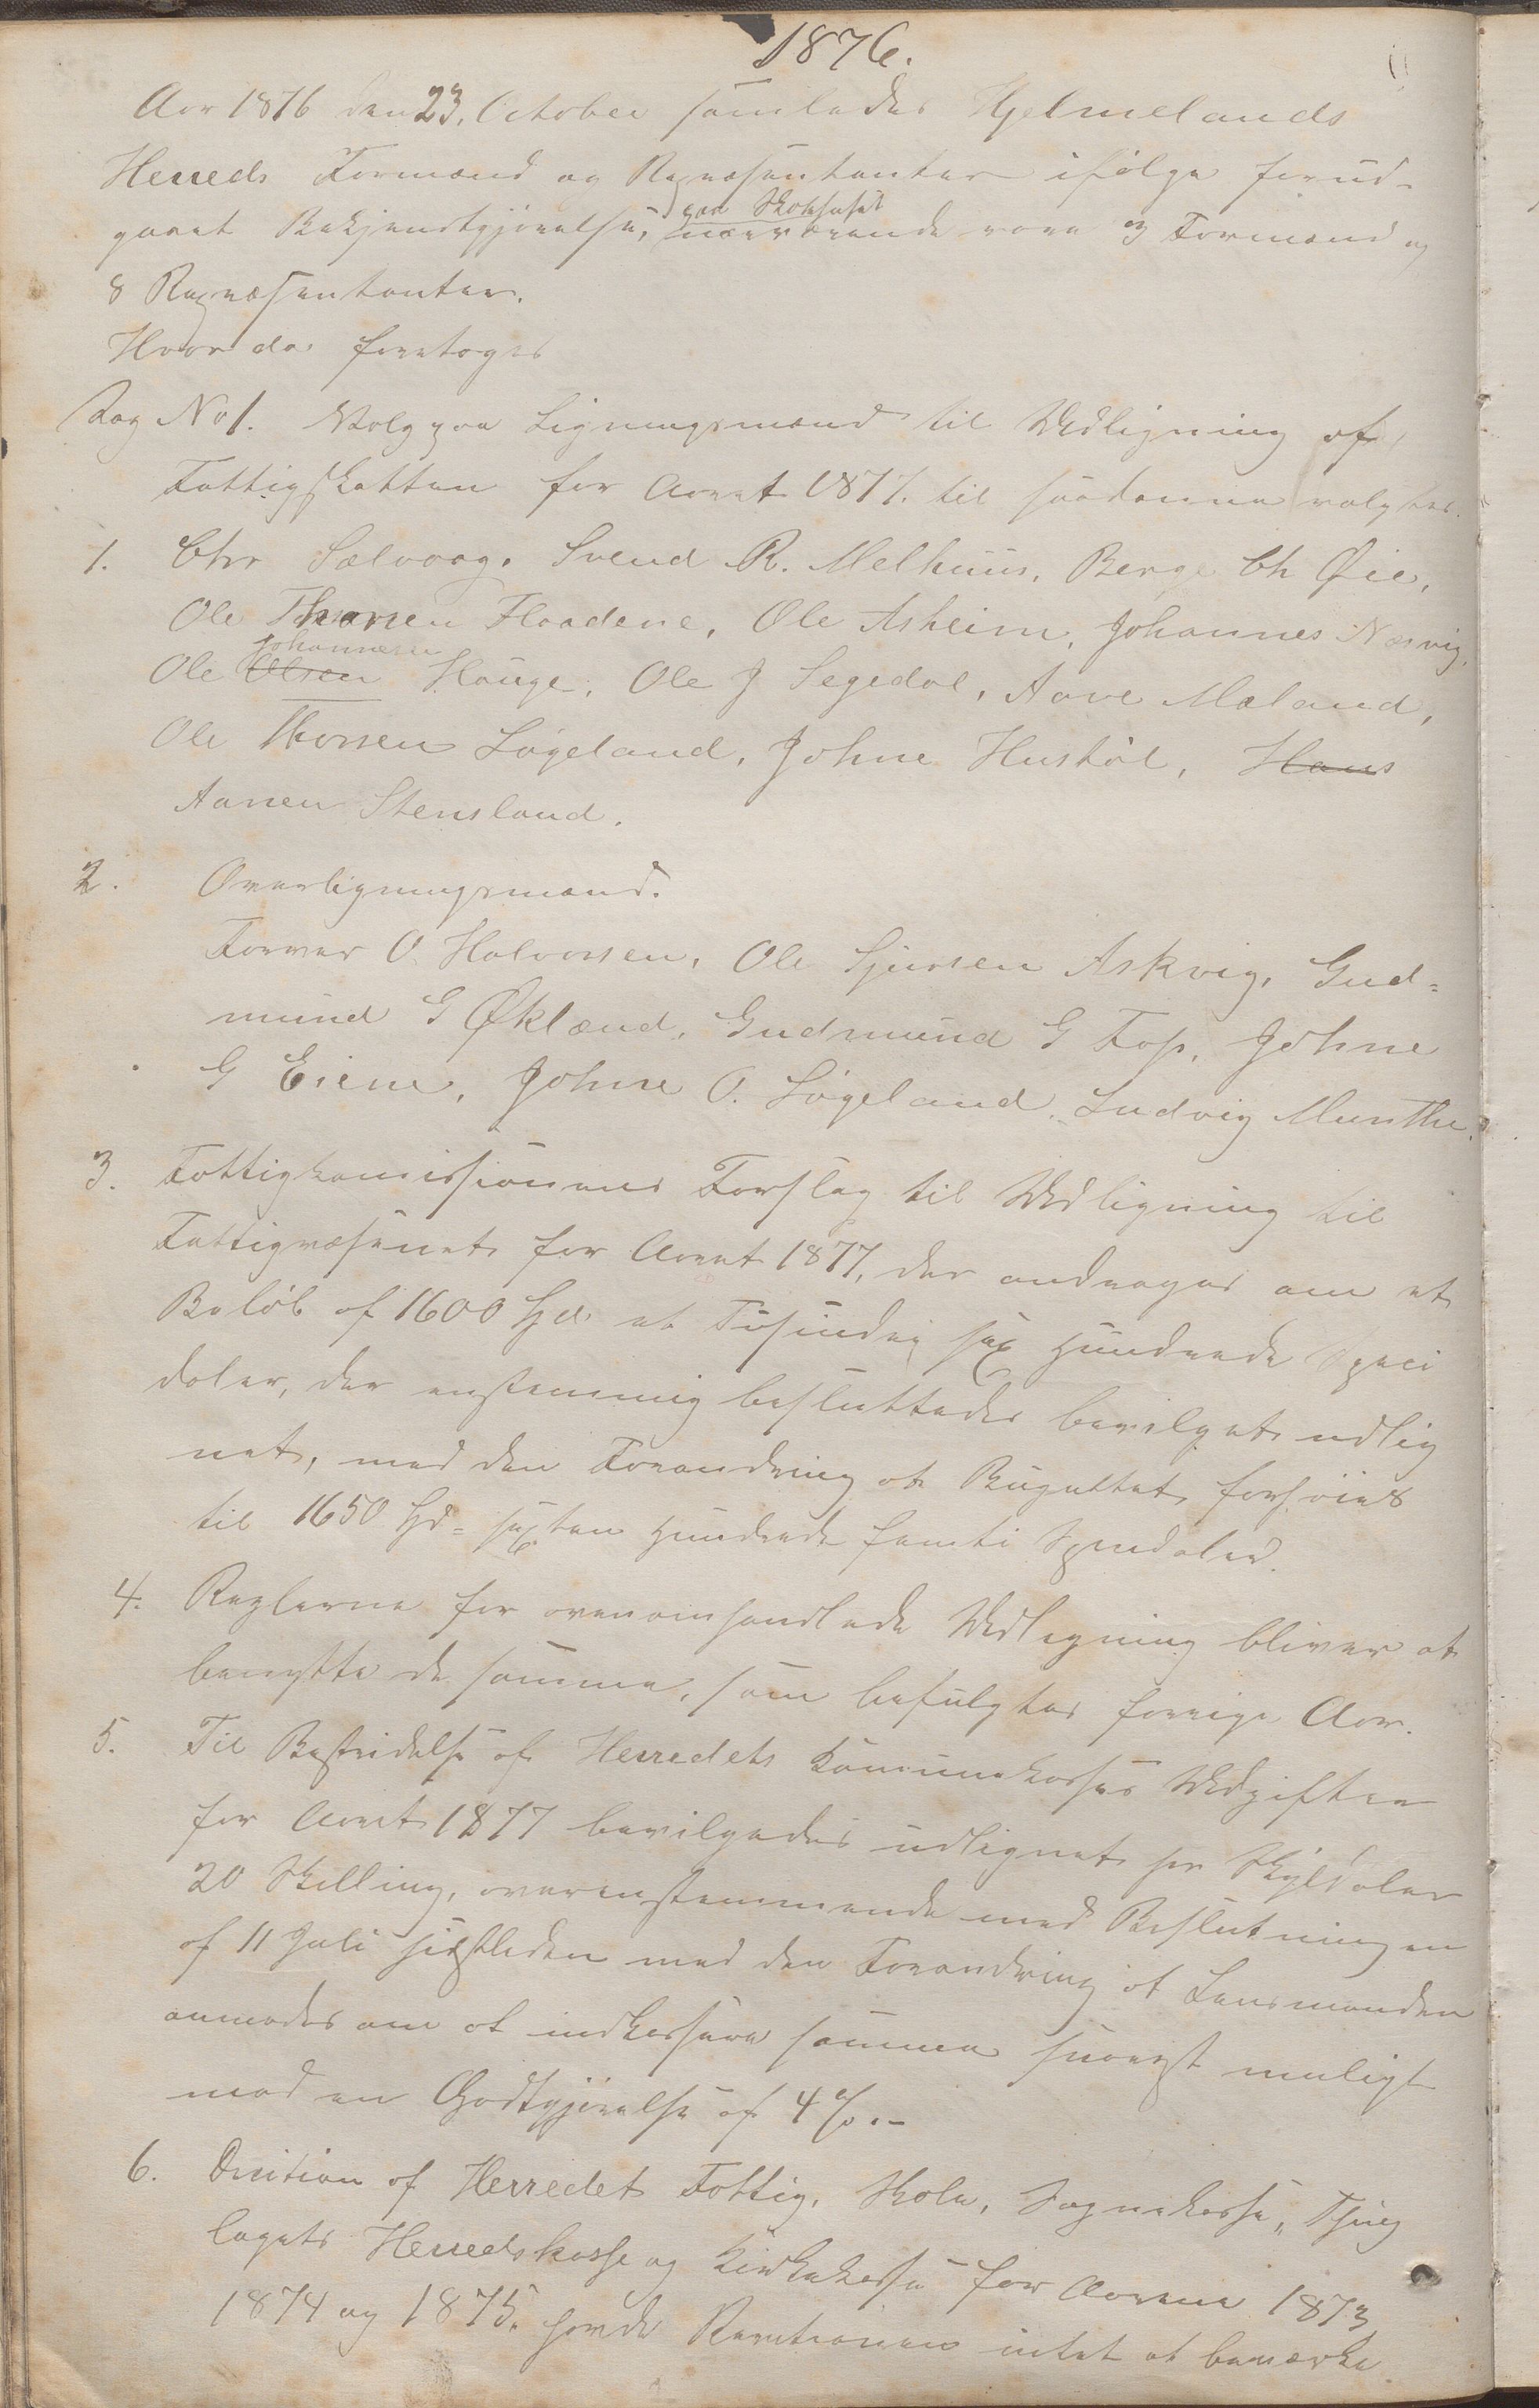 1876.
Aar 1876 den 23. October samledes Hjelmelands
Herreds Formænd og Repræsentanter ifølge forud-
gaaet Bekjendtgjørelse, paa Skolehuset nærværende vare 3 Formænd og
8 Repræsentanter.
Hvor da foretoges
Sag No 1. Valg paa Ligningsmænd til Udligning af
Fattigskatten for Aaret 1877. til saadanne valgtes.
1. Chr Sælvaag. Svend R. Melhuus, Berge Ch Øie,
Ole Thorsen Flaadene, Ole Asheim, Johannes Næsvig,
Ole Olsen Johannesen Hauge, Ole J Segedal, Aave Mæland,
Ole Thorsen Løgeland, Johne Hustøl, Hans
Aanen Stensland.
2. Overligningsmænd.
Farver O. Halvorsen, Ole Sjursen Askvig, Gud=
mund G Økland, Gudmund G Fos, Johne
G Eiene, Johne O. Løgeland, Ludvig Munthe.
3. Fattigkomissionens Forslag til Udligning til
Fattigvæsenet for Aaret 1877, der andrages om et
Beløb af 1600 Spd et Tusinde sex Hundrede Speci
daler, der enstemmig besluttedes bevilget udlig
net, med den Forandring at Bugettet forhøies
til 1650 Spd = sexten Hundrede femti Speciedaler.
4. Reglerne for ovenomhandlede Udligning bliver at
benytte de samme, som befulgtes forrige Aar.
5. Til Bestridelse af Herredets Kommunekasses Udgifter
for Aaret 1877 bevilgedes udlignet pr Skylddaler
20 Skilling, overenstemmende med Beslutningen
af 11 Juli sidstleden med den Forandring at Lensmanden
anmodes om at indkassere samme snarest muligt
mod en Godtgjørelse af 4 %.-
6. Decition af Herredets Fattig, Skole, Sognekasse, Thing
lagets Herredskasse og Kirkekasse for Aarene 1873,
1874 og 1875. havde Revitionen intet at bemærke.